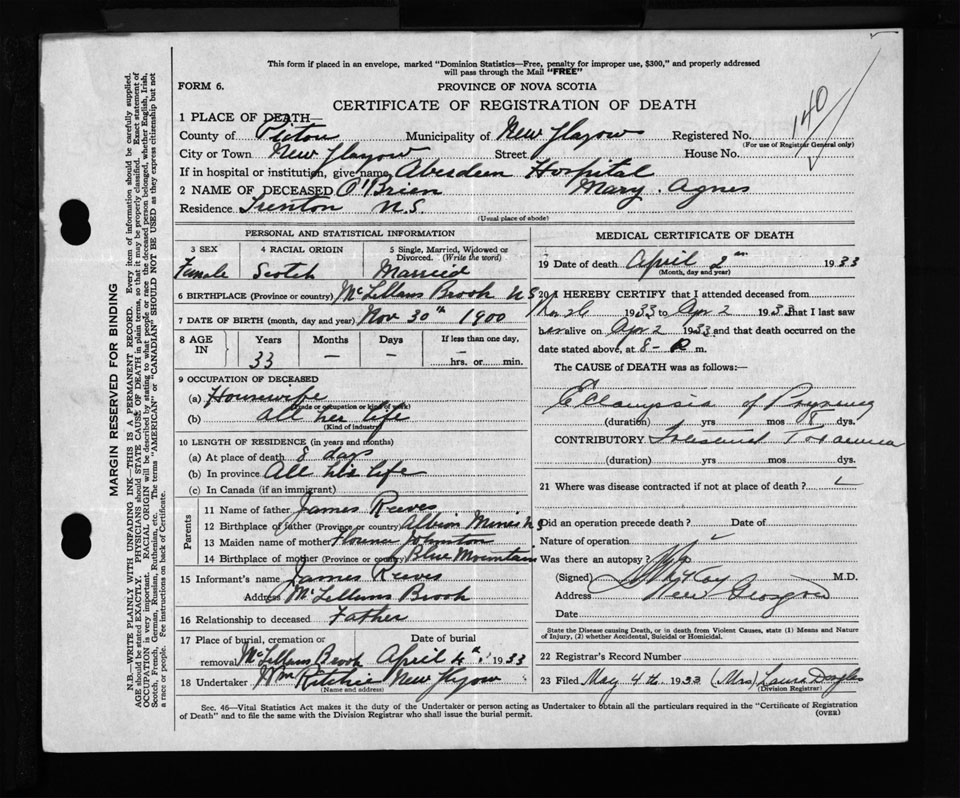 This form if placed in an envelope, marked "Dominion Statistics—Free, penalty for improper use, $300," and properly addressed
will pass through the Mail "FREE"
FORM 6.
PROVINCE OF NOVA SCOTIA
CERTIFICATE OF REGISTRATION OF DEATH
1 PLACE OF DEATH—
County of Pictou Municipality of New Glasgow Registered No. 140
(For use of Registrar General only)
City or Town New Glasgow Street House No.
If in hospital or institution, give name Aberdeen Hospital
2 NAME OF DECEASED O'Brien Mary Agnes
Residence Trenton N.S.
(Usual place of abode)
PERSONAL AND STATISTICAL INFORMATION
3 SEX 4 RACIAL ORIGIN 5 Single, Married, Widowed or
Divorced. (Write the word)
Female Scotch Married
6 BIRTHPLACE (Province or country) McLellans Brook N S
7 DATE OF BIRTH (month, day and year) Nov 30th 1900
8 AGE IN Years Months Days If less than one day.
33 — — — hrs. or min.
9 OCCUPATION OF DECEASED
(a) Housewife
(Trade or occupation or kind of work)
(b) all her life
(Kind of industry)
10 LENGTH OF RESIDENCE (in years and months)
(a) At place of death 8 days
(b) In province All his life
(c) In Canada (if an immigrant)
Parents
11 Name of father James Reeves
12 Birthplace of father (Province or country) Albion Mines N S
13 Maiden name of mother Johnston
14 Birthplace of mother (Province or country) Blue Mountain
15 Informant's name James Reeves
Address McLellans Brook
16 Relationship to deceased Father
17 Place of burial, cremation or Date of burial
removal McLellans Brook April 4th, 1933
18 Undertaker Wm Ritchie New Glasgow
(Name and address)
MEDICAL CERTIFICATE OF DEATH
19 Date of death April 2nd 1933
(Month, day and year)
20 I HEREBY CERTIFY that I attended deceased from
Mar 26 1933 to Apr 2 1933 that I last saw
her alive on Apr 2 1933 and that death occurred on the
date stated above, at 8- P m.
The CAUSE of DEATH was as follows:—
Eclampsia of Pregnancy
(duration) yrs mos 8 dys.
CONTRIBUTORY Toxaemia
(duration) yrs mos dys.
21 Where was disease contracted if not at place of death?
Did an operation precede death? Date of
Nature of operation
Was there an autopsy?
(Signed) McKay M.D.
Address New Glasgow
Date
State the Disease causing Death, or in death from Violent Causes, state (1) Means and Nature
of Injury, (2) whether Accidental, Suicidal or Homicidal.
22 Registrar's Record Number
23 Filed May 4th 1933 (Mrs) Laura Douglas
(Division Registrar)
Sec. 46—Vital Statistics Act makes it the duty of the Undertaker or person acting as Undertaker to obtain all the particulars required in the "Certificate of Registration
of Death" and to file the same with the Division Registrar who shall issue the burial permit. (OVER)
MARGIN RESERVED FOR BINDING
N.B. WRITE PLAINLY WITH UNFADING INK—THIS IS A PERMANENT RECORD. Every item of information should be carefully supplied.
AGE should be stated EXACTLY. PHYSICIANS should STATE CAUSE OF DEATH in plain terms, so that it may be properly classified. Exact statement of
OCCUPATION is very important. RACIAL ORIGIN will be described by stating to what people or race the deceased person belonged, whether English, Irish,
Scotch, French, German, Russian, Ruthenian, etc. The terms "AMERICAN" or "CANADIAN" SHOULD NOT BE USED as they express citizenship but not
a race or people. Fee instructions on back of Certificate.